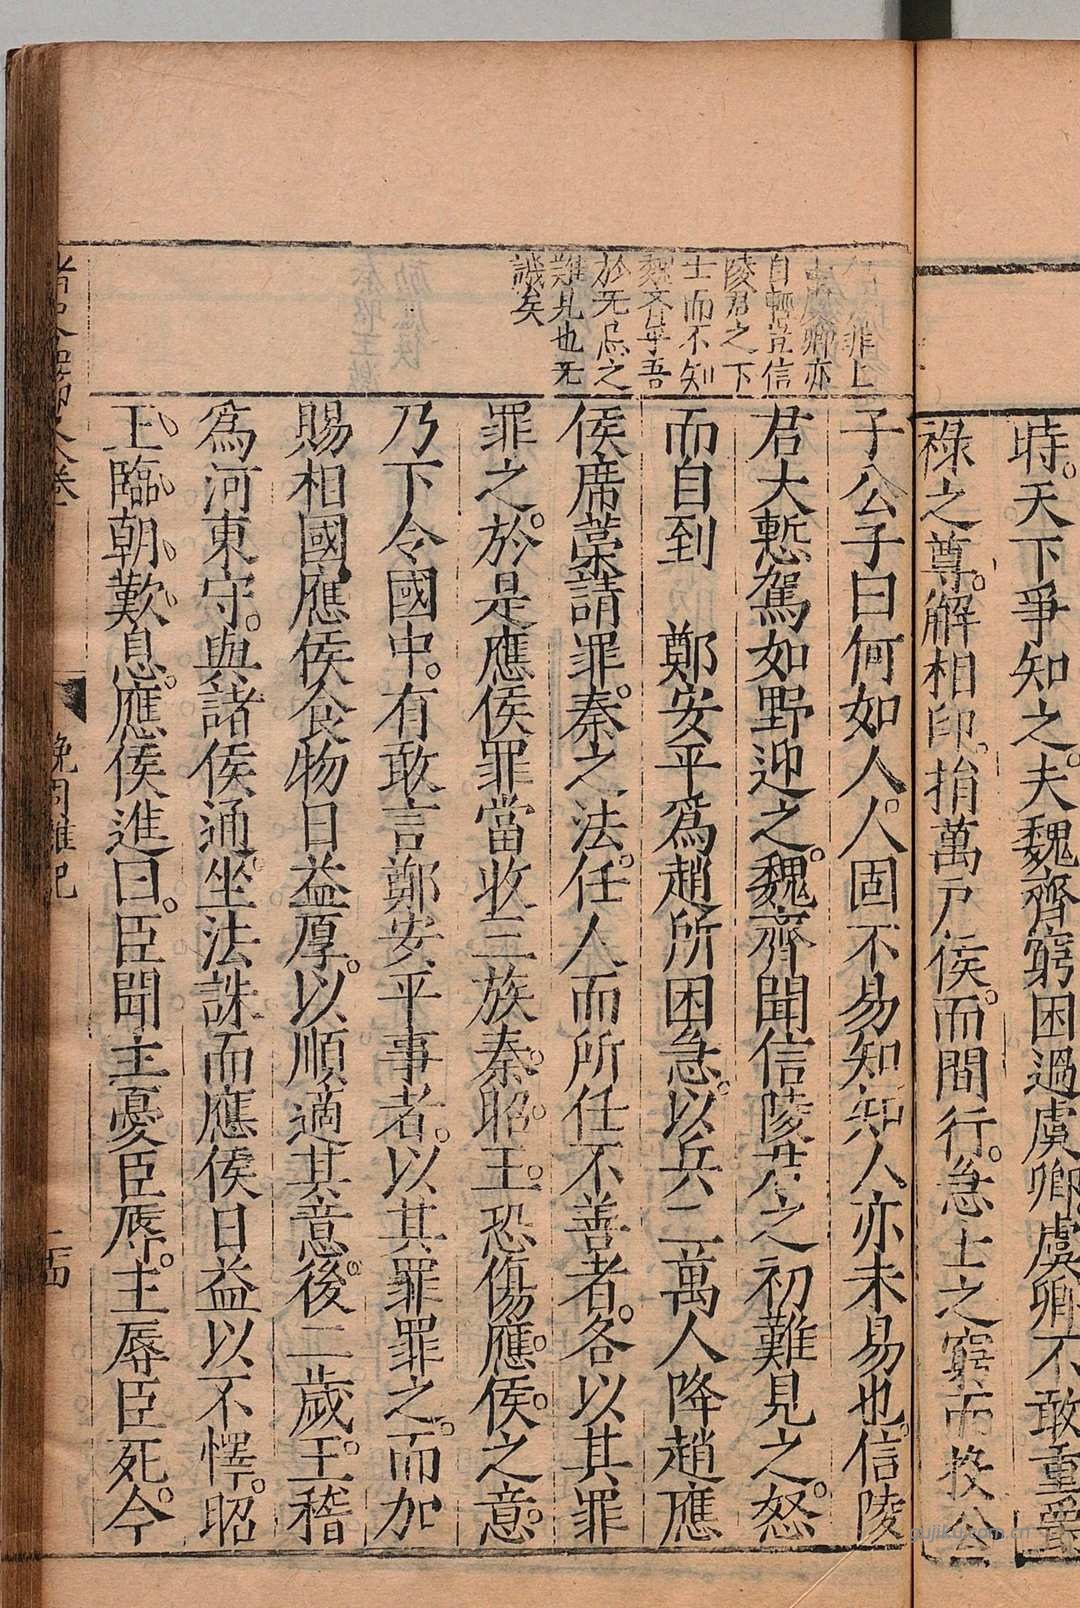 時天下爭知之夫魏齊窮困過虞卿虞卿不敢重爵
祿之尊解相印捐萬戶侯而間行急士之窮而投公
子公子曰何如人人固不易知知人亦未易也信陵
君大慙駕如野迎之魏齊聞信陵君之初難見之怒
而自刭 鄭安平爲趙所困急以兵二萬人降趙應
侯席藁請罪秦之法任人而所任不善者各以其罪
罪之於是應侯罪當收三族秦昭王恐傷應侯之意
乃下令國中有敢言鄭安平事者以其罪罪之而加
賜相國應侯食物日益厚以順適其意後二歲王稽
為河東守與諸侯通坐法誅而應侯日益以不懌昭
王臨朝歎息應侯進曰臣聞主憂臣辱主辱臣死今
罪上
虞卿亦
自輕豈信
陵君之下
士而不知
魏齊乎吾
於无忌之
難見也无
譏矣
晚周雜記
gujiku.com.cn